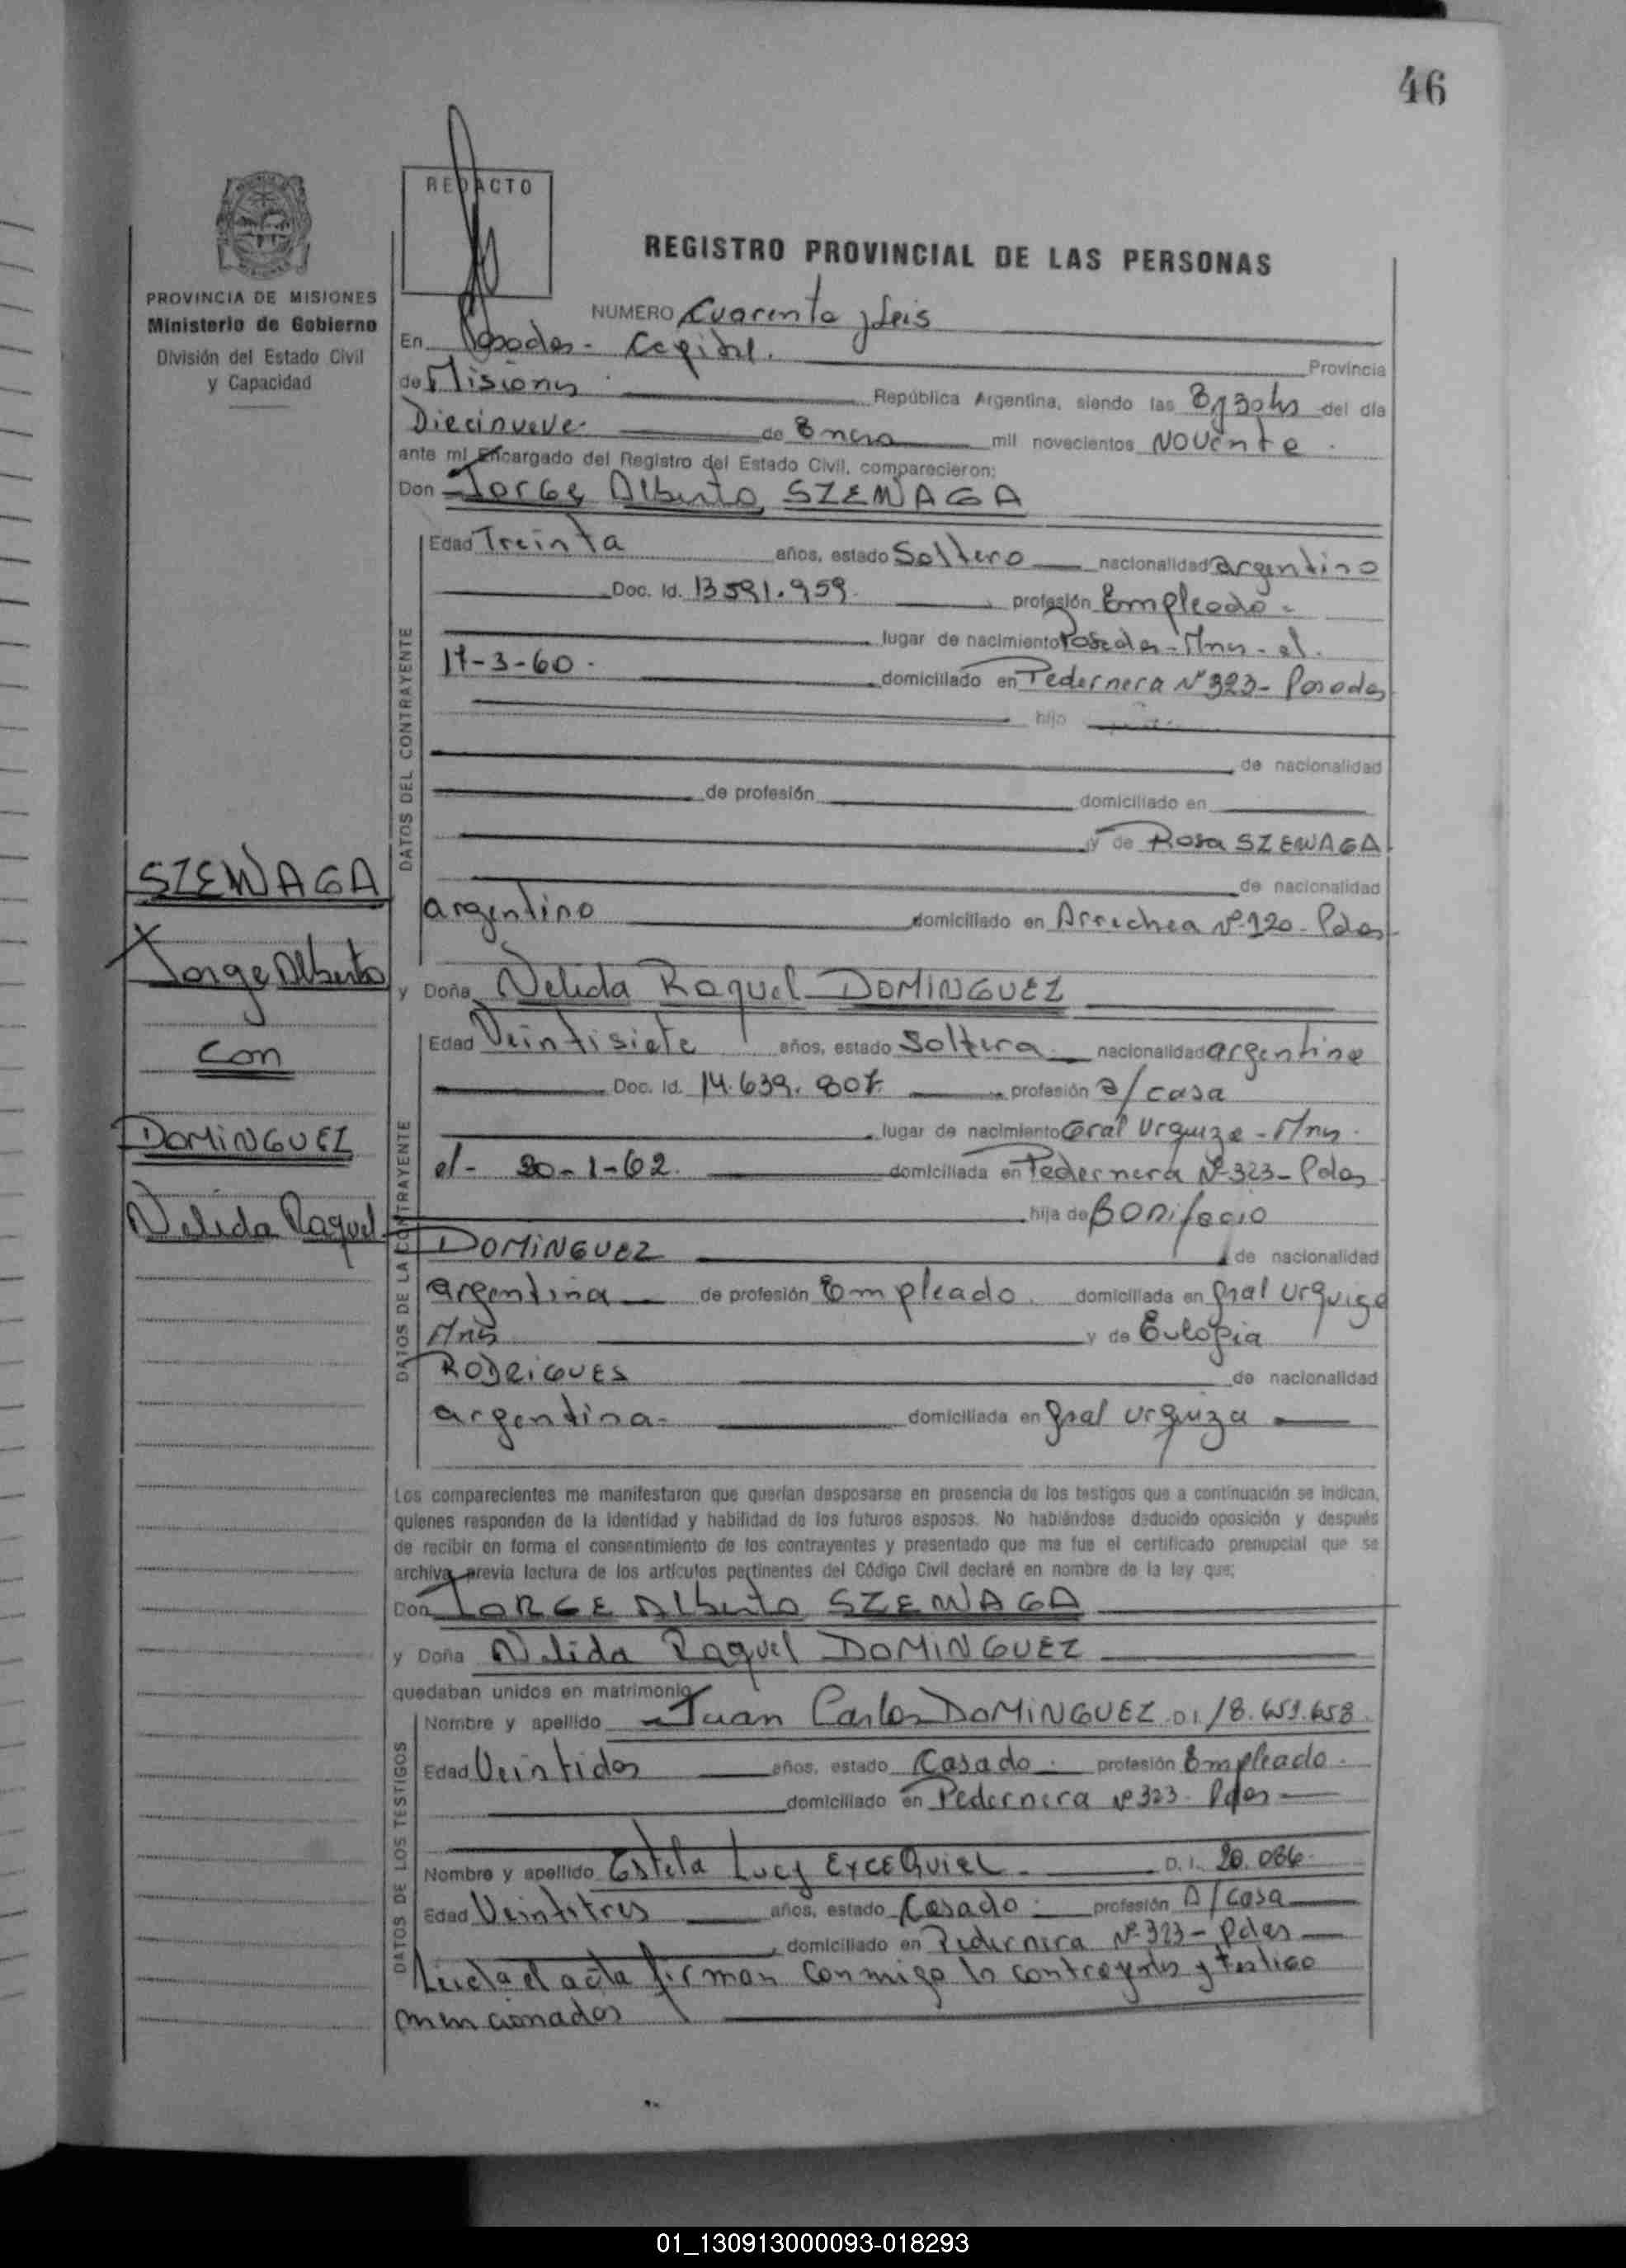 46
REDACTO
REGISTRO PROVINCIAL DE LAS PERSONAS
PROVINCIA DE MISIONES
Ministerio de Gobierno
División del Estado Civil
y Capacidad
NUMERO Cuarenta y Seis
En Posadas - Capital. Provincia
de Misiones República Argentina, siendo las 8,30 hs del día
Diecinueve de Enero mil novecientos NOVENTA
ante mi Encargado del Registro del Estado Civil, comparecieron:
Don Jorge Alberto SZEWAGA
DATOS DEL CONTRAYENTE
Edad Treinta años, estado Soltero nacionalidad argentino
Doc. Id. 13.591.959 profesión Empleado -
lugar de nacimiento Posadas - Mnes - el.
17-3-60 - domiciliado en Pedernera Nº 323 - Posadas
hijo
de nacionalidad
de profesión domiciliado en
y de Rosa SZEWAGA
de nacionalidad
argentino domiciliado en Arrechea Nº 120 - Pdas
SZEWAGA
Jorge Alberto
con
DOMINGUEZ
Nelida Raquel
y Doña Nelida Raquel DOMINGUEZ
DATOS DE LA CONTRAYENTE
Edad Veintisiete años, estado Soltera nacionalidad argentina
Doc. Id. 14.639.807 profesión a/casa
lugar de nacimiento Gral Urquiza - Mnes.
el - 20-1-62. domiciliada en Pedernera Nº 323 - Pdas
hija de Bonifacio
DOMINGUEZ de nacionalidad
argentina de profesión Empleado. domiciliada en Gral Urquiza
Mnes y de Eulogia
RODRIGUES de nacionalidad
argentina - domiciliada en Gral Urquiza
Los comparecientes me manifestaron que querían desposarse en presencia de los testigos que a continuación se indican,
quienes responden de la identidad y habilidad de los futuros esposos. No habiéndose deducido oposición y después
de recibir en forma el consentimiento de los contrayentes y presentado que me fue el certificado prenupcial que se
archiva previa lectura de los artículos pertinentes del Código Civil declaré en nombre de la ley que:
Don JORGE Alberto SZEWAGA
y Doña Nelida Raquel DOMINGUEZ
quedaban unidos en matrimonio
DATOS DE LOS TESTIGOS
Nombre y apellido Juan Carlos DOMINGUEZ D.I. 18.659.658
Edad Veintidos años, estado Casado. profesión Empleado.
domiciliado en Pedernera Nº 323 - Pdas
Nombre y apellido Estela Lucy EXCEQUIEL - D.I. 20.086
Edad Veintitres años, estado Casado profesión A/casa
domiciliado en Pedernera Nº 323 - Pdas
Leida el acta firman conmigo lo contrayentes y testigo
mencionados
01_130913000093-018293